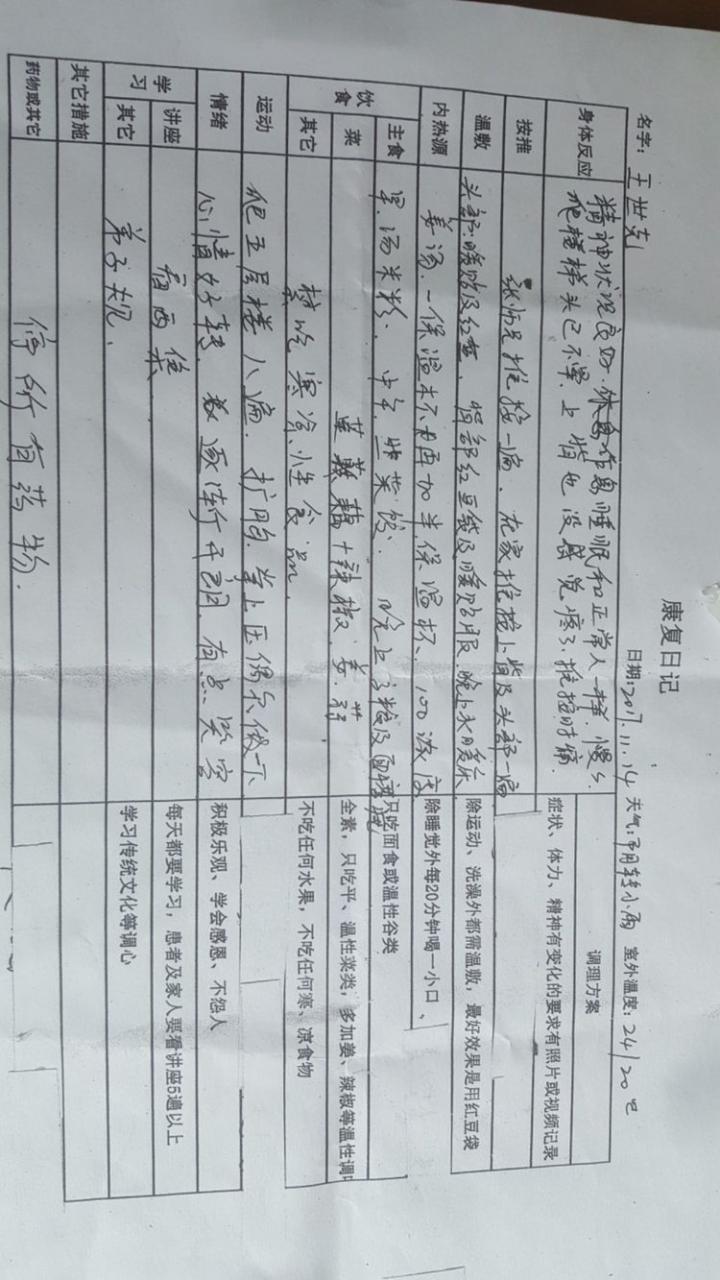 康复日记
名字：王世克 日期:2017.11.14 天气:多用转小雨 室外温度：24/20℃
调理方案
身体反应 精神状况良好.休息作息睡眠和正常人一样.慢慢
爬楼梯头已不晕.上背也没感觉疼了.推按时痛. 症状、体力、精神有变化的要求有照片或视频记录
按推 张师兄推按一遍.在家推按上背及头部一遍
温敷 头部:暖贴及红豆.背部红豆袋及暖贴服.晚上水暖床 除运动、洗澡外都需温敷，最好效果是用红豆袋
内热源 姜汤.一保温杯不用再加半保温杯、100浓度 除睡觉外每20分钟喝一小口、
饮食 主食 早.汤米粉.中午.韭菜饺.晚上 只吃面食或温性谷类
菜 辣椒.姜.蒜 全素，只吃平、温性菜类，多加姜、辣椒等温性调
其它 禁吃寒冷性食品. 不吃任何水果，不吃任何寒、凉食物
运动 爬五层楼八遍.扩胸.掌上压偶尔做一下
情绪 心情好转.逐渐开朗.有点笑容 积极乐观、学会感恩、不怨人
学习 讲座 看两集 每天都要学习，患者及家人要看讲座5遍以上
其它 弟子规. 学习传统文化等调心
其它措施
药物或其它 停所有药物.